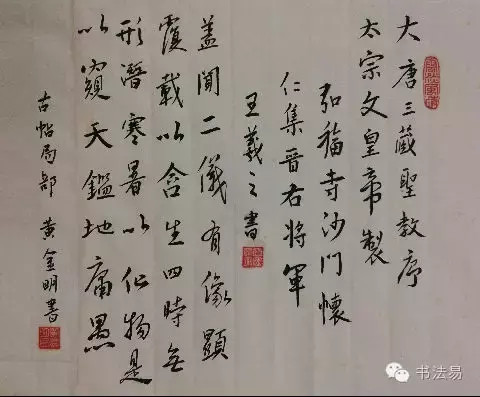 大唐三藏聖教序
太宗文皇帝製
弘福寺沙門懷
仁集晉右將軍
王羲之書
盖聞二儀有像顯
覆載以含生四時無
形潛寒暑以化物是
以窺天鑑地庸愚
古帖局部 黄金明書
书法易